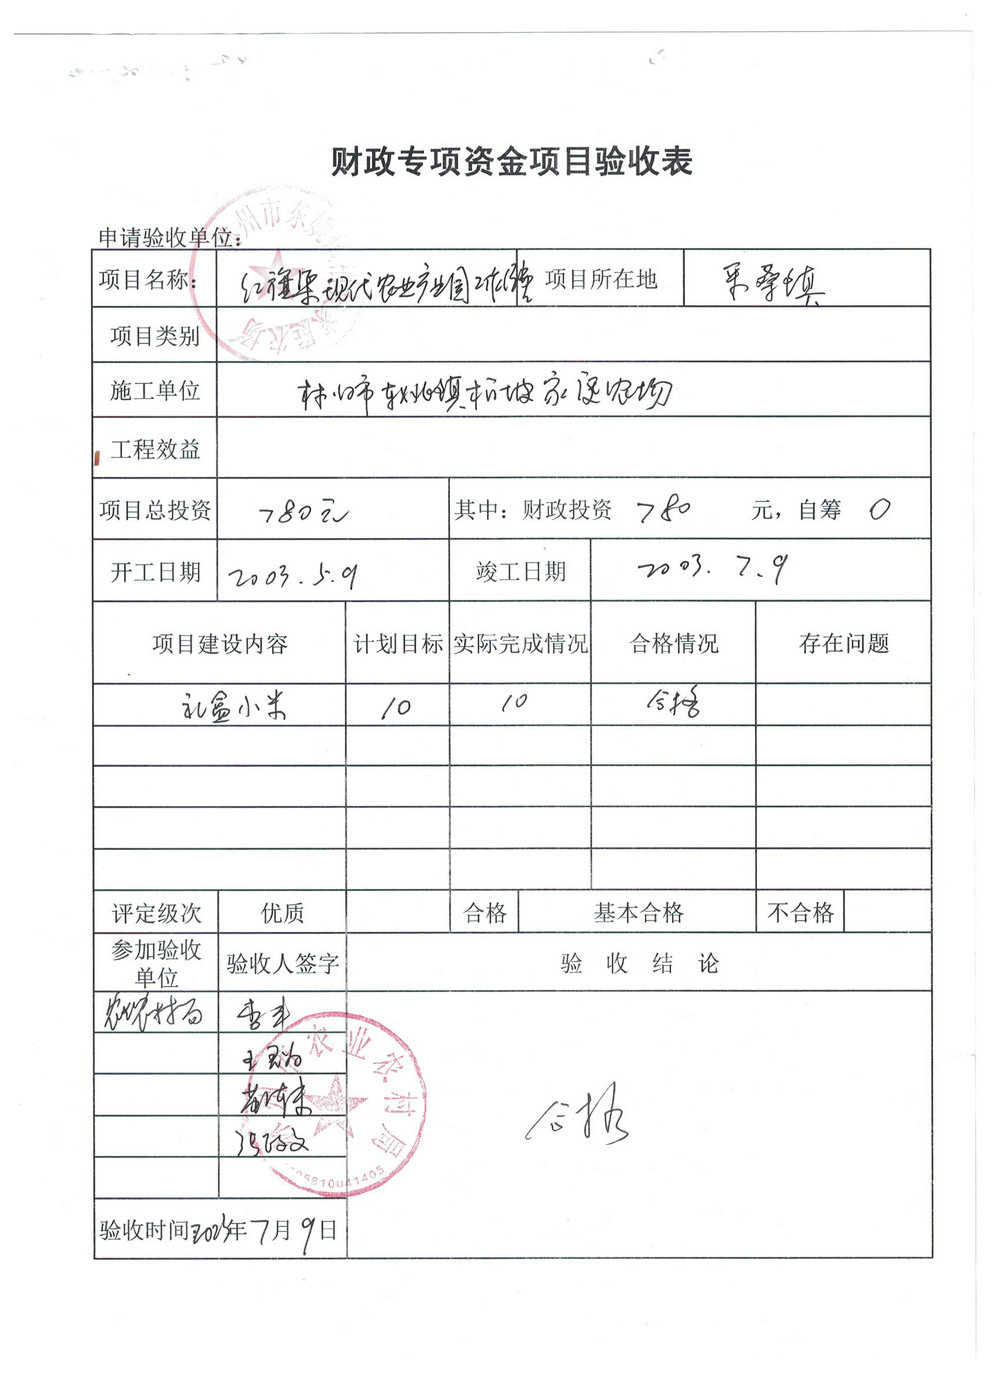 财政专项资金项目验收表
申请验收单位：
项目名称： 红旗渠现代农业产业园工作经费 项目所在地 采桑镇
项目类别
施工单位 林州市东姚镇柏坡家庭农场
工程效益
项目总投资 780元 其中：财政投资 780 元，自筹 0
开工日期 2003.5.9 竣工日期 2003.7.9
项目建设内容 计划目标 实际完成情况 合格情况 存在问题
礼盒小米 10 10 合格
评定级次 优质 合格 基本合格 不合格
参加验收单位 验收人签字 验 收 结 论
农业农村局 李丰
合格
验收时间2023年7月9日
州市东姚 家庭农场
州市农业农村局
5810041405